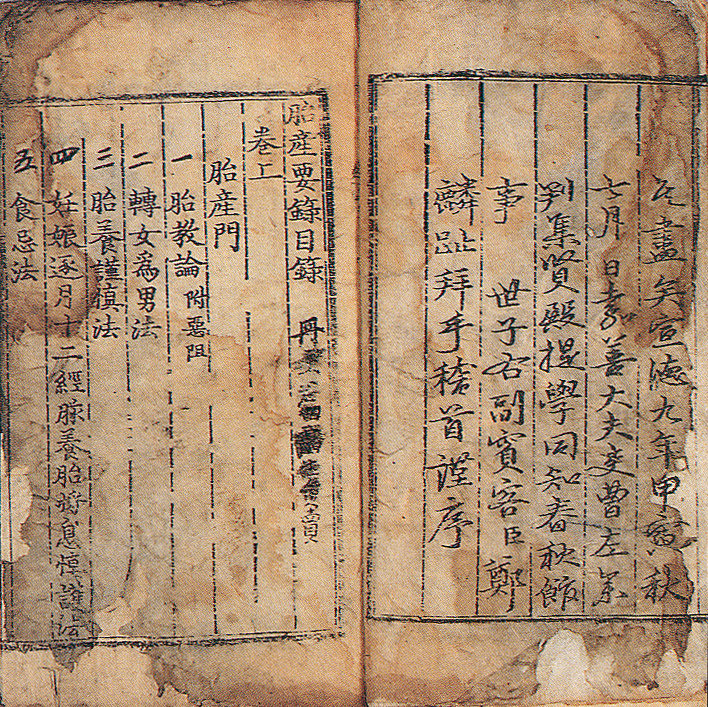 盡矣宣德九年甲寅秋
七月 日嘉善大夫吏曹左參
判集賢殿提學同知春秋館
事 世子右副賓客臣鄭
麟趾拜手稽首謹序
胎産要錄目錄 再
卷上
胎産門
一 胎教論 附惡阻
二 轉女爲男法
三 胎養謹愼法
四 妊娠逐月十二經脉養胎將息愼護法
五 食忌法